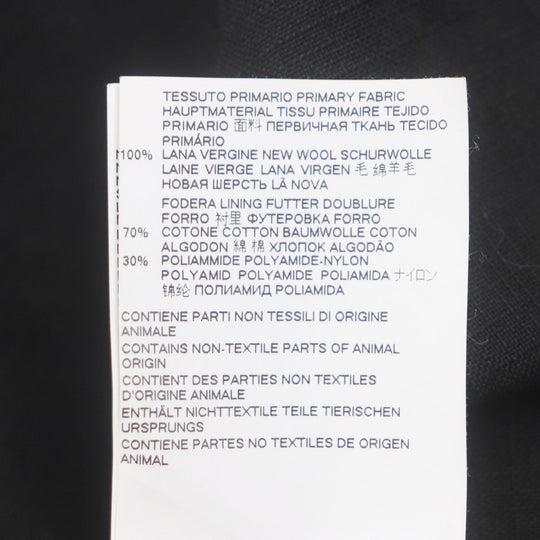 TESSUTO PRIMARIO PRIMARY FABRIC
HAUPTMATERIAL TISSU PRIMAIRE TEJIDO
PRIMARIO 面料 ПЕРВИЧНАЯ ТКАНЬ TECIDO
PRIMÁRIO
100% LANA VERGINE NEW WOOL SCHURWOLLE
LAINE VIERGE LANA VIRGEN 毛 绵羊毛
НОВАЯ ШЕРСТЬ LÃ NOVA
FODERA LINING FUTTER DOUBLURE
FORRO 衬里 ФУТЕРОВКА FORRO
70% COTONE COTTON BAUMWOLLE COTON
ALGODON 綿 棉 ХЛОПОК ALGODÃO
30% POLIAMMIDE POLYAMIDE-NYLON
POLYAMID POLYAMIDE POLIAMIDA ナイロン
锦纶 ПОЛИАМИД POLIAMIDA
CONTIENE PARTI NON TESSILI DI ORIGINE
ANIMALE
CONTAINS NON-TEXTILE PARTS OF ANIMAL
ORIGIN
CONTIENT DES PARTIES NON TEXTILES
D'ORIGINE ANIMALE
ENTHÄLT NICHTTEXTILE TEILE TIERISCHEN
URSPRUNGS
CONTIENE PARTES NO TEXTILES DE ORIGEN
ANIMAL